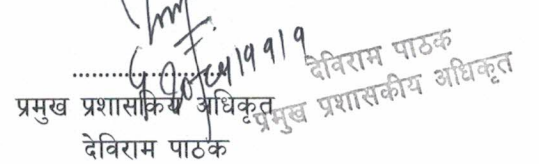 देविराम पाठक
प्रमुख प्रशासकीय अधिकृत
....................
प्रमुख प्रशासकिय अधिकृत
देविराम पाठक